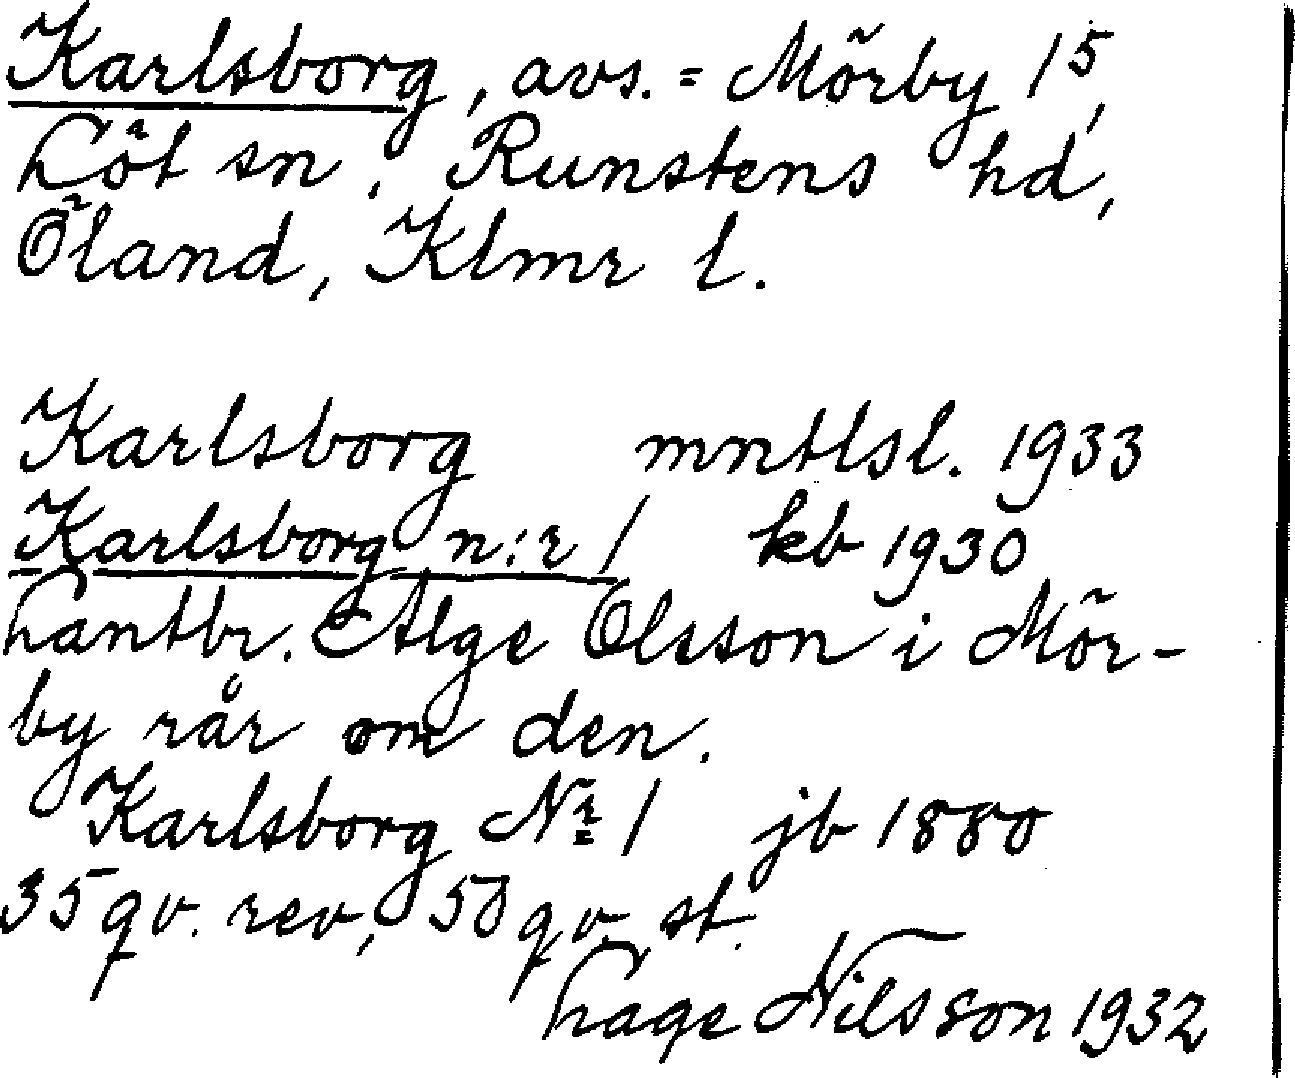 Karlsborg, avs. = Mörby 1⁵,
Löt sn, Runstens hd,
Öland, Klmr l.
Karlsborg mntlsl. 1933
Karlsborg n:r 1 kb 1930
Lantbr. Alge Olsson i Mör-
by rår om den.
Karlsborg Nr 1 jb 1880
35 qv. rev, 50 qv. st.
Lage Nilsson 1932